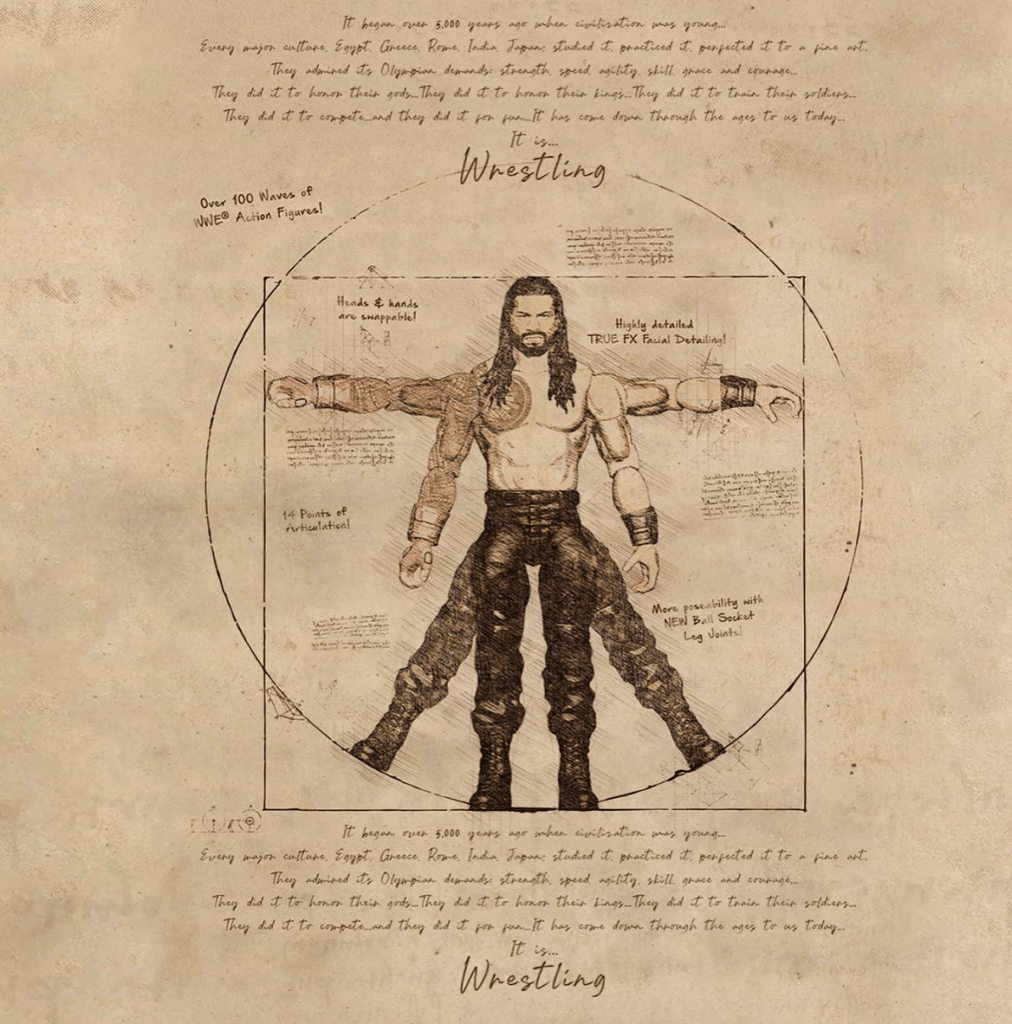 It began over 5,000 years ago when civilization was young...
Every major culture, Egypt, Greece, Rome, India, Japan; studied it, practiced it, perfected it to a fine art.
They admired its Olympian demands: strength, speed, agility, skill, grace and courage...
They did it to honor their gods...They did it to honor their kings...They did it to train their soldiers...
They did it to compete...and they did it for fun...It has come down through the ages to us today...
It is...
Wrestling
Over 100 Waves of
WWE® Action Figures!
Heads & hands
are swappable!
Highly detailed
TRUE FX Facial Detailing!
14 Points of
Articulation!
More poseability with
NEW Ball Socket
Leg Joints!
It began over 5,000 years ago when civilization was young...
Every major culture, Egypt, Greece, Rome, India, Japan; studied it, practiced it, perfected it to a fine art.
They admired its Olympian demands: strength, speed, agility, skill, grace and courage...
They did it to honor their gods...They did it to honor their kings...They did it to train their soldiers...
They did it to compete...and they did it for fun...It has come down through the ages to us today...
It is...
Wrestling